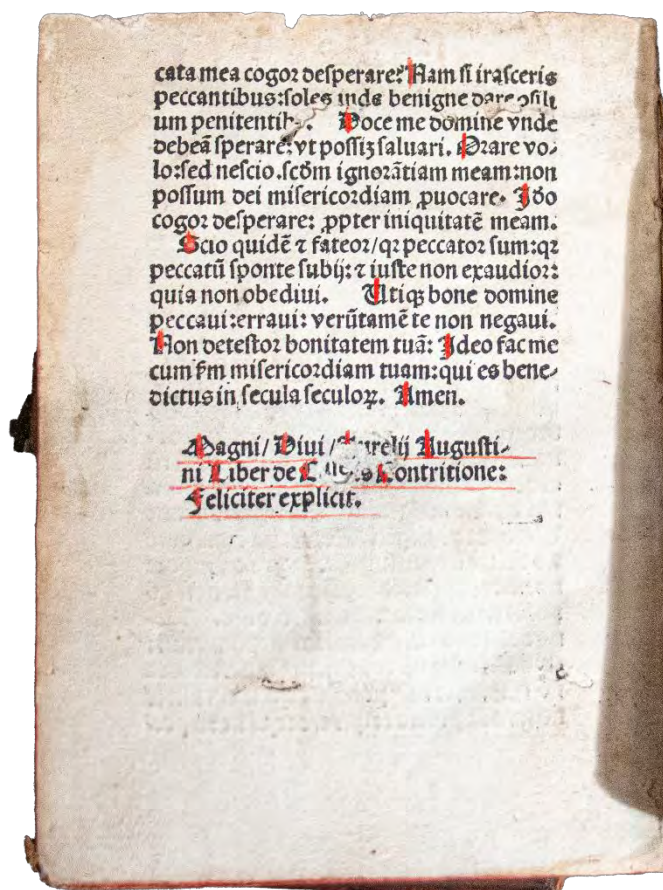 cata mea cogor desperare? Nam si irasceris
peccantibus: soles inde benigne dare ↄsili
um penitentib. Doce me domine vnde
debeā sperare: vt possiꝫ saluari. Orare vo⸗
lo: sed nescio. scd̄m ignorātiam meam: non
possum dei misericordiam ꝓuocare. Iдо
cogor desperare: ꝓpter iniquitatē meam.
Scio quidē ⁊ fateor/ qꝛ peccator sum: qꝛ
peccatū sponte subij: ⁊ iuste non exaudior:
quia non obediui. Utiqꝫ bone domine
peccaui: erraui: verūtamē te non negaui.
Non detestor bonitatem tuā: Ideo fac me
cum s̄m misericordiam tuam: qui es bene⸗
dictus in secula seculoꝝ. Amen.
Magni/ Diui/ Aurelij Augusti⸗
ni Liber de Contritione:
Feliciter explicit.